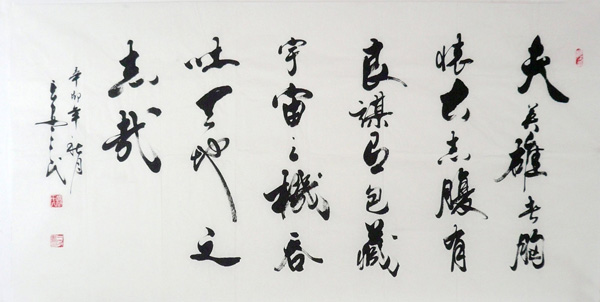 夫英雄者胸
懷大志腹有
良謀包藏
宇宙之機吞
吐天地之
志哉
辛卯年秋月